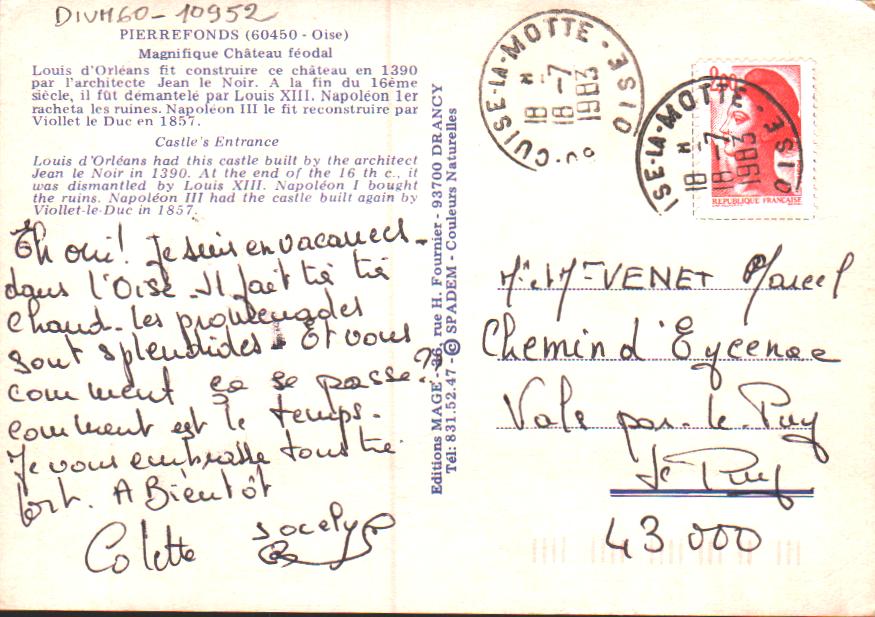 DIVH60-10952
PIERREFONDS (60450 - Oise)
Magnifique Château féodal
Louis d'Orléans fit construire ce château en 1390
par l'architecte Jean le Noir. A la fin du 16ème
siècle, il fût démantelé par Louis XIII. Napoléon 1er
racheta les ruines. Napoléon III le fit reconstruire par
Viollet le Duc en 1857.
Castle's Entrance
Louis d'Orléans had this castle built by the architect
Jean le Noir in 1390. At the end of the 16 th c., it
was dismantled by Louis XIII. Napoléon I bought
the ruins. Napoléon III had the castle built again by
Viollet-le-Duc in 1857.
Eh oui! Je suis en vacances
dans l'Oise. Il fait très très
chaud. les promenades
sont splendides. Et vous
comment ça se passe?
comment est le temps.
Je vous embrasse tous très
fort. A Bientôt
Colette Jocelyn
Editions MAGE - 86, rue H. Fournier - 93700 DRANCY
Tél: 831.52.47 - © SPADEM - Couleurs Naturelles
CUISE-LA-MOTTE · OISE
18 H
18-7
1983
ISE-LA-MOTTE · OISE
18 H
18-7
1983
2,00
REPUBLIQUE FRANCAISE
Mr et Mme VENET Marcel
Chemin d'Eycenac
Vals par-le-Puy
Le Puy
43 000